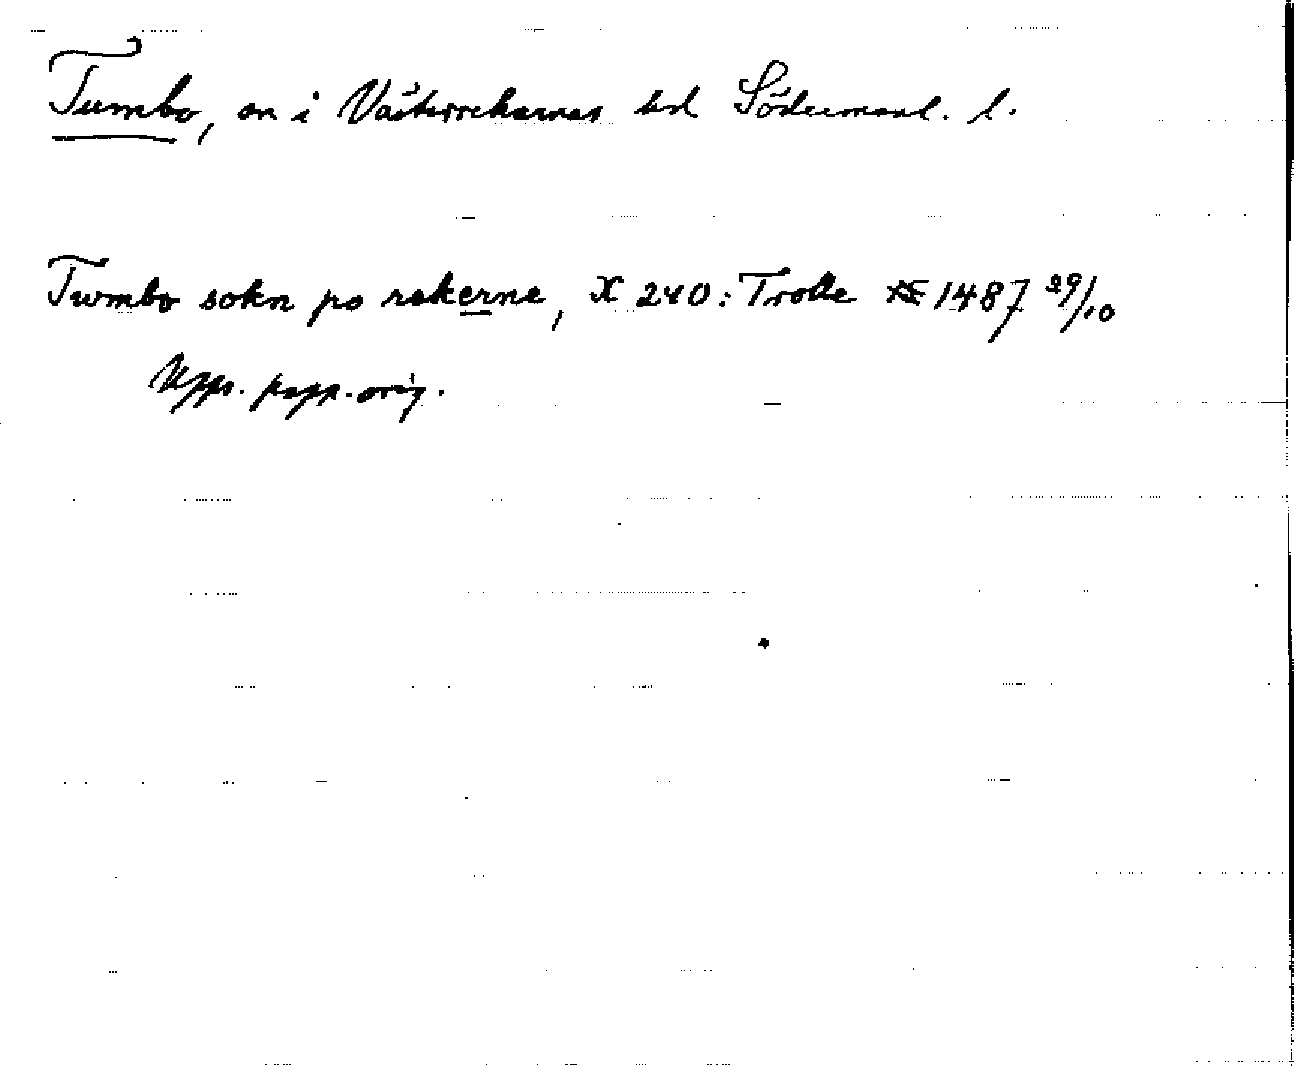 Tumbo, sn i Västerrekarnes hd Södermanl. l.
Twmbo sokn po rekerne, X 240: Trolle 1487 29/10
Upps. papp. orig.